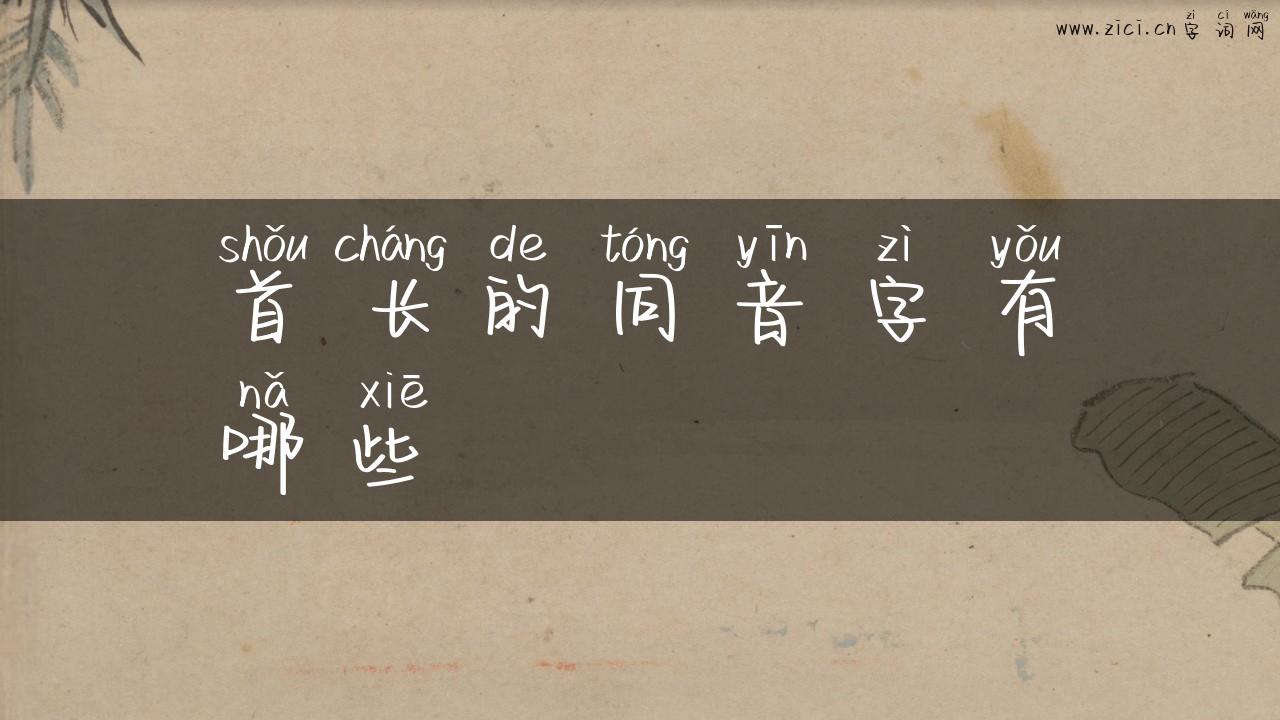 zì cí wǎng
www.zici.cn 字词网
shǒu cháng de tóng yīn zì yǒu
首长的同音字有
nǎ xiē
哪些